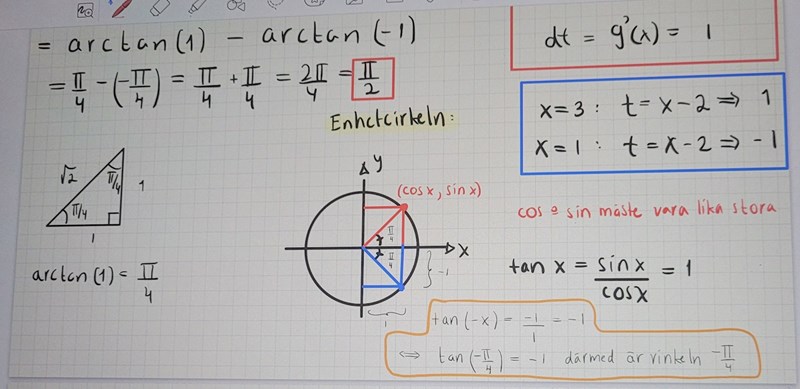 = arctan(1) - arctan(-1)
= π/4 - (-π/4) = π/4 + π/4 = 2π/4 = π/2
dt = g'(x) = 1
x=3 : t=x-2 ⇒ 1
x=1 : t=x-2 ⇒ -1
Enhetcirkeln:
√2
π/4
π/4
1
1
arctan(1) = π/4
y
(cos x, sin x)
π/4
π/4
x
-1
1
cos o sin måste vara lika stora
tan x = sin x/cos x = 1
tan(-x) = -1/1 = -1
⇔ tan(-π/4) = -1 därmed är vinkeln -π/4